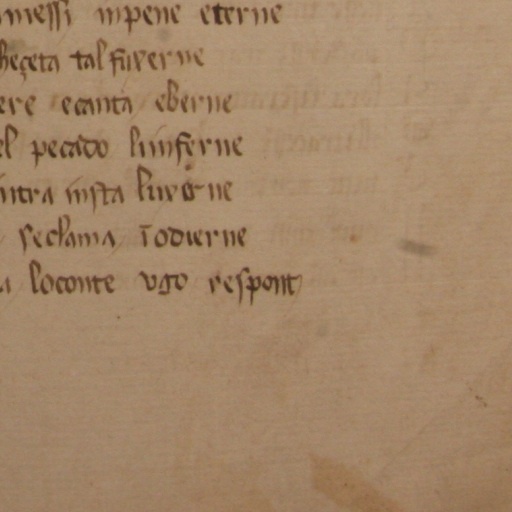 messi inpene eterne
heçeta tal fuverne
ere ecanta eberne
el pecado linferne
intra insta luverne
seclama iodierne
a loconte vgo respont